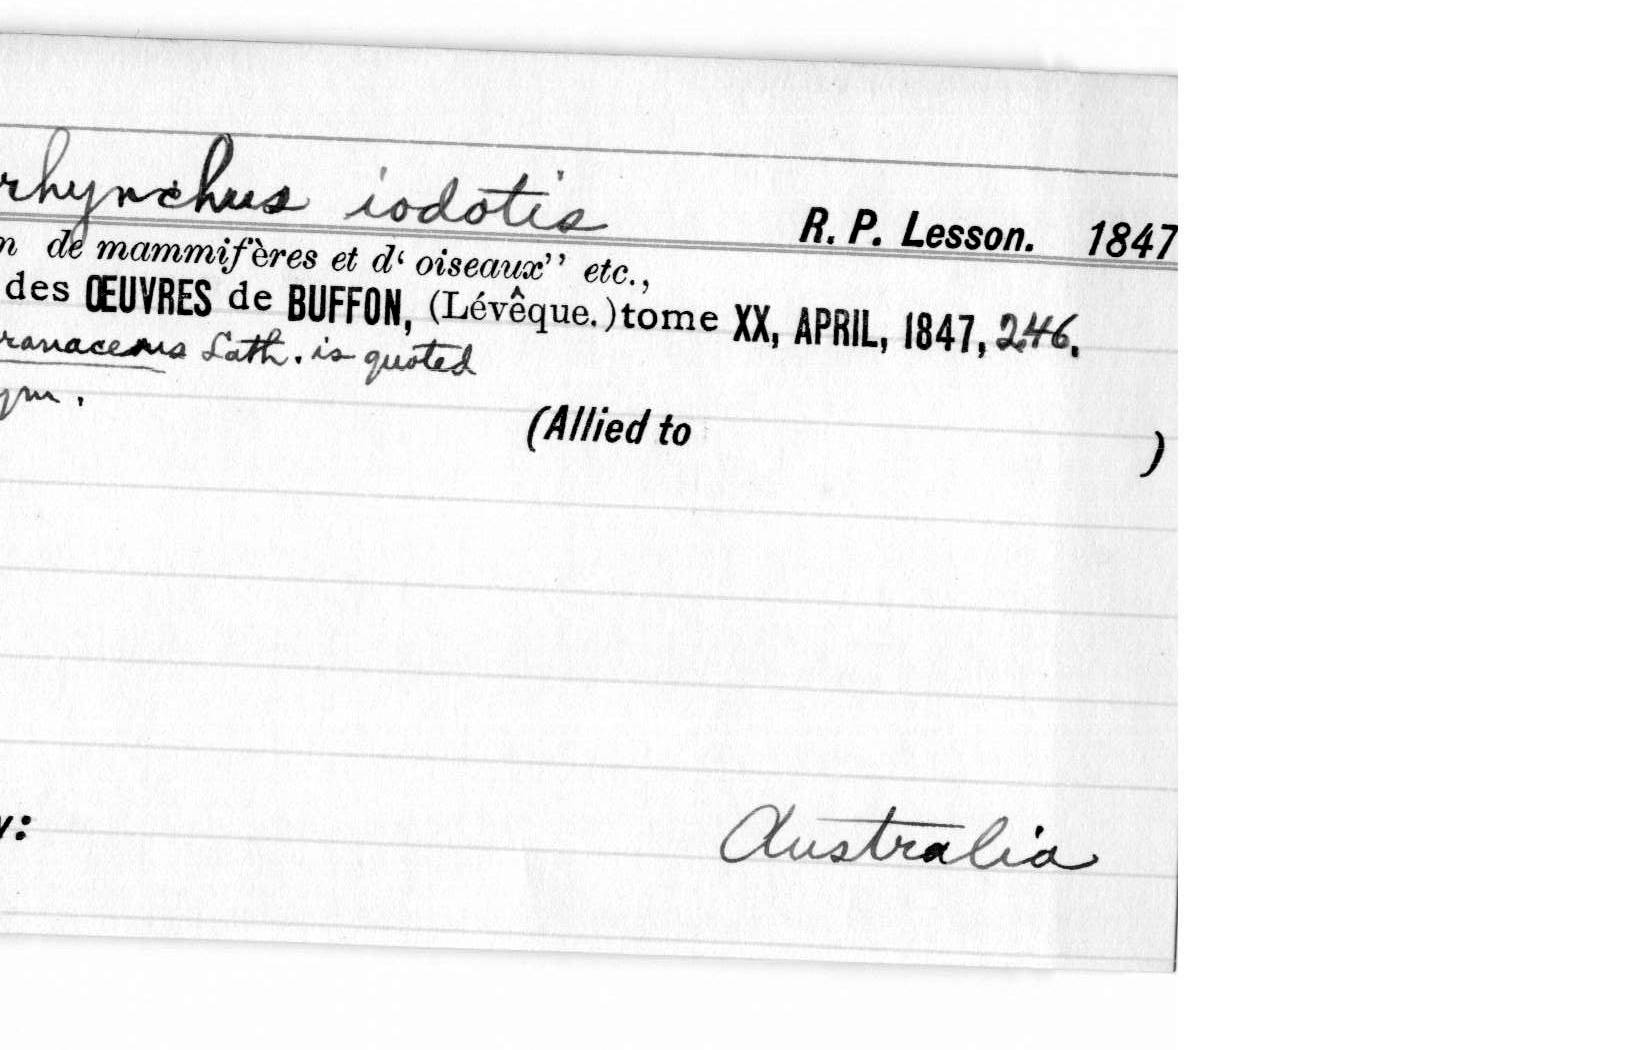 rhynchus iodotis R. P. Lesson. 1847
n de mammifères et d‘ oiseaux’’ etc.,
des ŒUVRES de BUFFON, (Lévêque.) tome XX, APRIL, 1847, 246.
ranaceous Lath. is quoted
ym.
(Allied to )
y: Australia